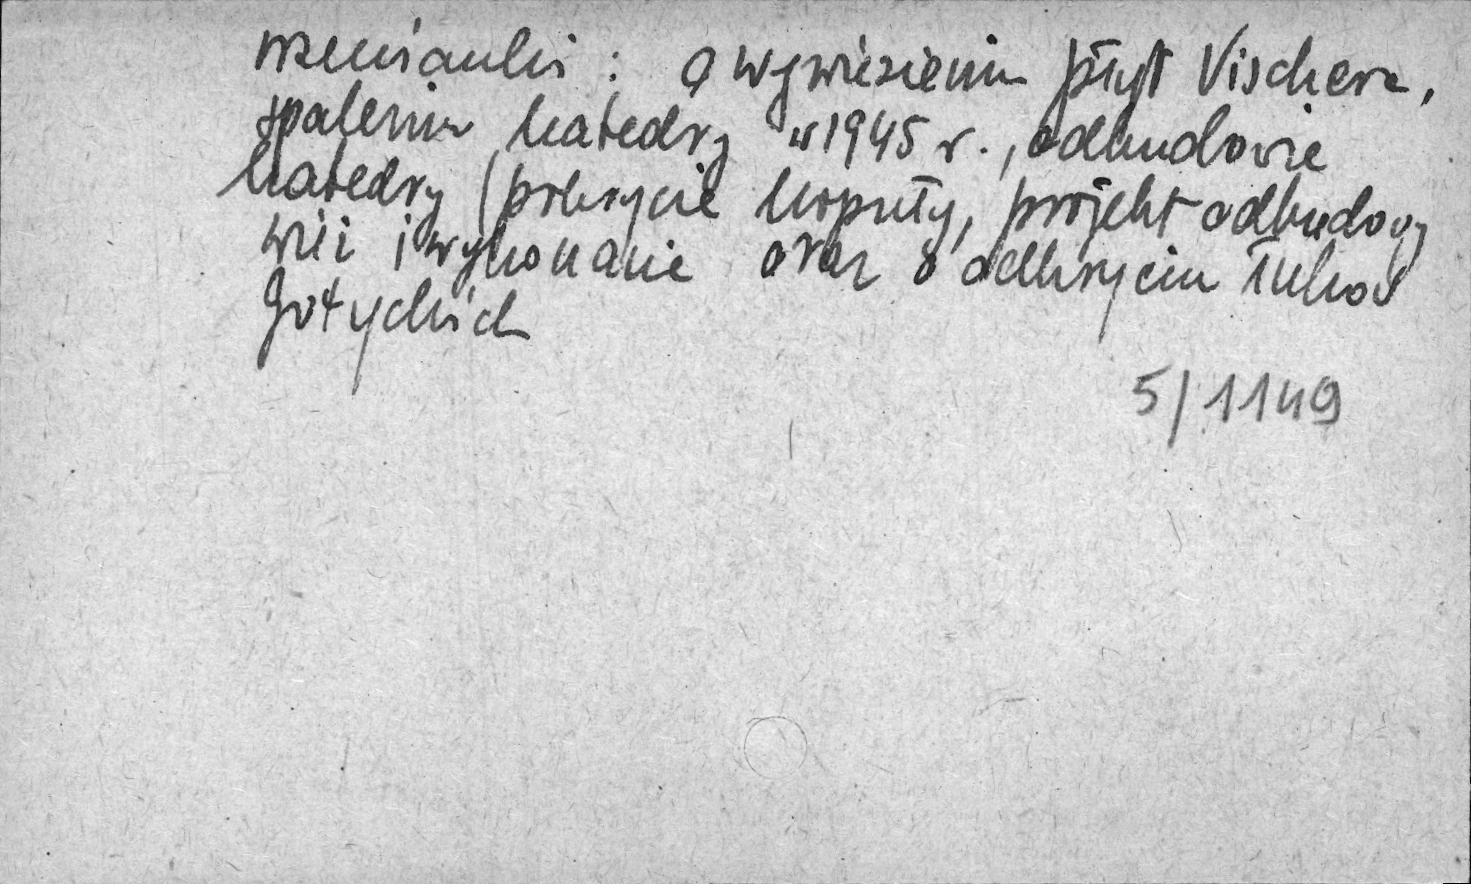 wzmianki: o wywiezieniu płyt Vischera,
spaleniu katedry w 1945 r., odbudowie
katedry (pokrycie kopuły, projekt odbudowy
wież i wykonanie oraz o odkryciu łuków
gotyckich
5/1149